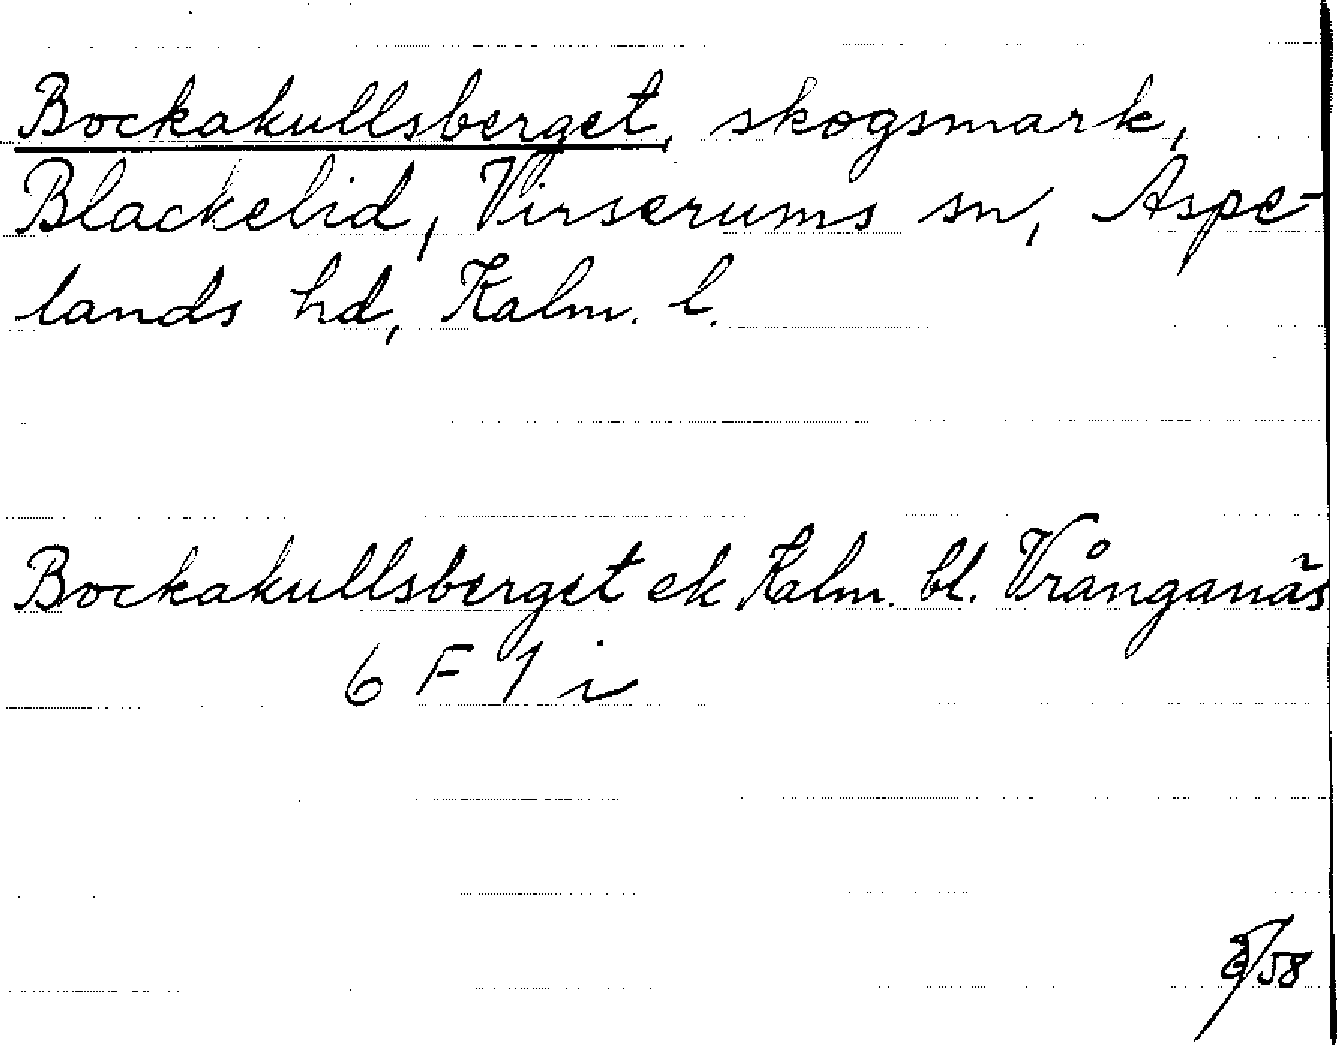 Bockakullsberget, skogsmark,
Blackelid, Virserums sn, Aspe-
lands hd, Kalm. l.
Bockakullsberget ek Kalm. bl. Vrånganäs
6 F 1 i
58